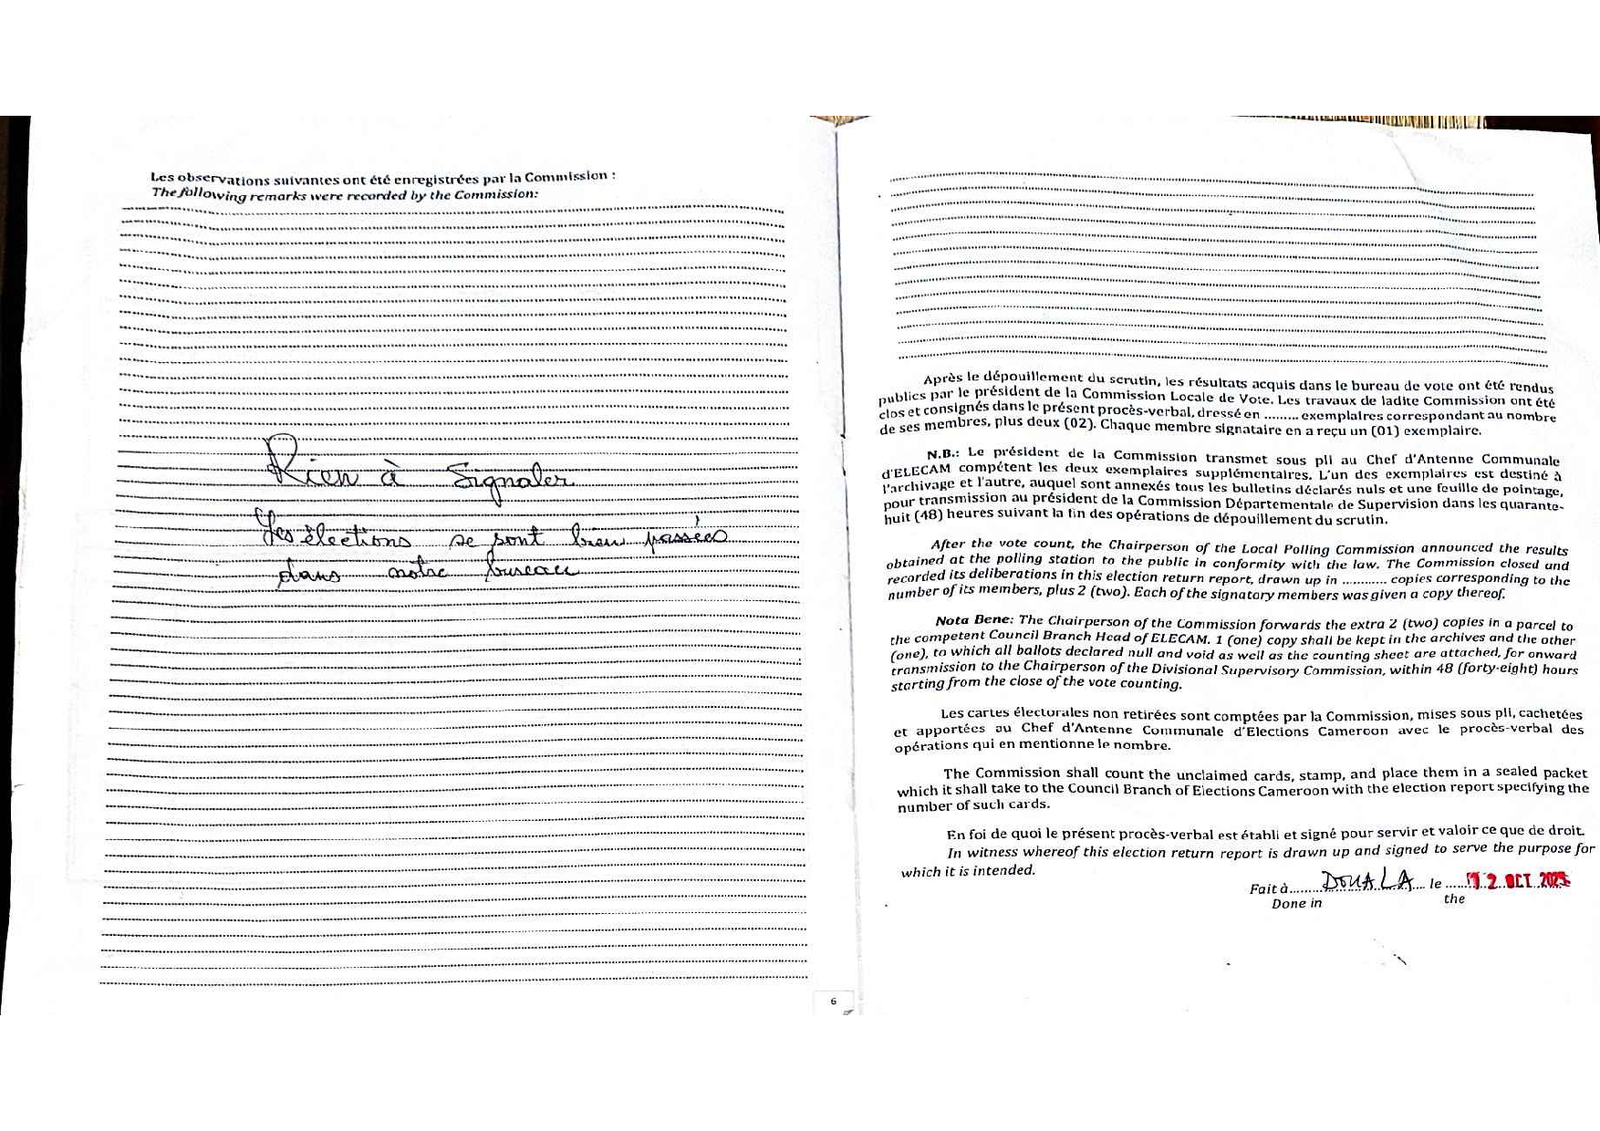 Les observations suivantes ont été enregistrées par la Commission :
The following remarks were recorded by the Commission:
Rien à Signaler
Les élections se sont bien passées
dans notre bureau
6
Après le dépouillement du scrutin, les résultats acquis dans le bureau de vote ont été rendus
publics par le président de la Commission Locale de Vote. Les travaux de ladite Commission ont été
clos et consignés dans le présent procès-verbal, dressé en ......... exemplaires correspondant au nombre
de ses membres, plus deux (02). Chaque membre signataire en a reçu un (01) exemplaire.
N.B.: Le président de la Commission transmet sous pli au Chef d'Antenne Communale
d'ELECAM compétent les deux exemplaires supplémentaires. L'un des exemplaires est destiné à
l'archivage et l'autre, auquel sont annexés tous les bulletins déclarés nuls et une feuille de pointage,
pour transmission au président de la Commission Départementale de Supervision dans les quarante-
huit (48) heures suivant la fin des opérations de dépouillement du scrutin.
After the vote count, the Chairperson of the Local Polling Commission announced the results
obtained at the polling station to the public in conformity with the law. The Commission closed and
recorded its deliberations in this election return report, drawn up in ............ copies corresponding to the
number of its members, plus 2 (two). Each of the signatory members was given a copy thereof.
Nota Bene: The Chairperson of the Commission forwards the extra 2 (two) copies in a parcel to
the competent Council Branch Head of ELECAM. 1 (one) copy shall be kept in the archives and the other
(one), to which all ballots declared null and void as well as the counting sheet are attached, for onward
transmission to the Chairperson of the Divisional Supervisory Commission, within 48 (forty-eight) hours
starting from the close of the vote counting.
Les cartes électorales non retirées sont comptées par la Commission, mises sous pli, cachetées
et apportées au Chef d'Antenne Communale d'Elections Cameroon avec le procès-verbal des
opérations qui en mentionne le nombre.
The Commission shall count the unclaimed cards, stamp, and place them in a sealed packet
which it shall take to the Council Branch of Elections Cameroon with the election report specifying the
number of such cards.
En foi de quoi le présent procès-verbal est établi et signé pour servir et valoir ce que de droit.
In witness whereof this election return report is drawn up and signed to serve the purpose for
which it is intended.
Fait à........DOUALA.... le .....12 OCT 2025
Done in the